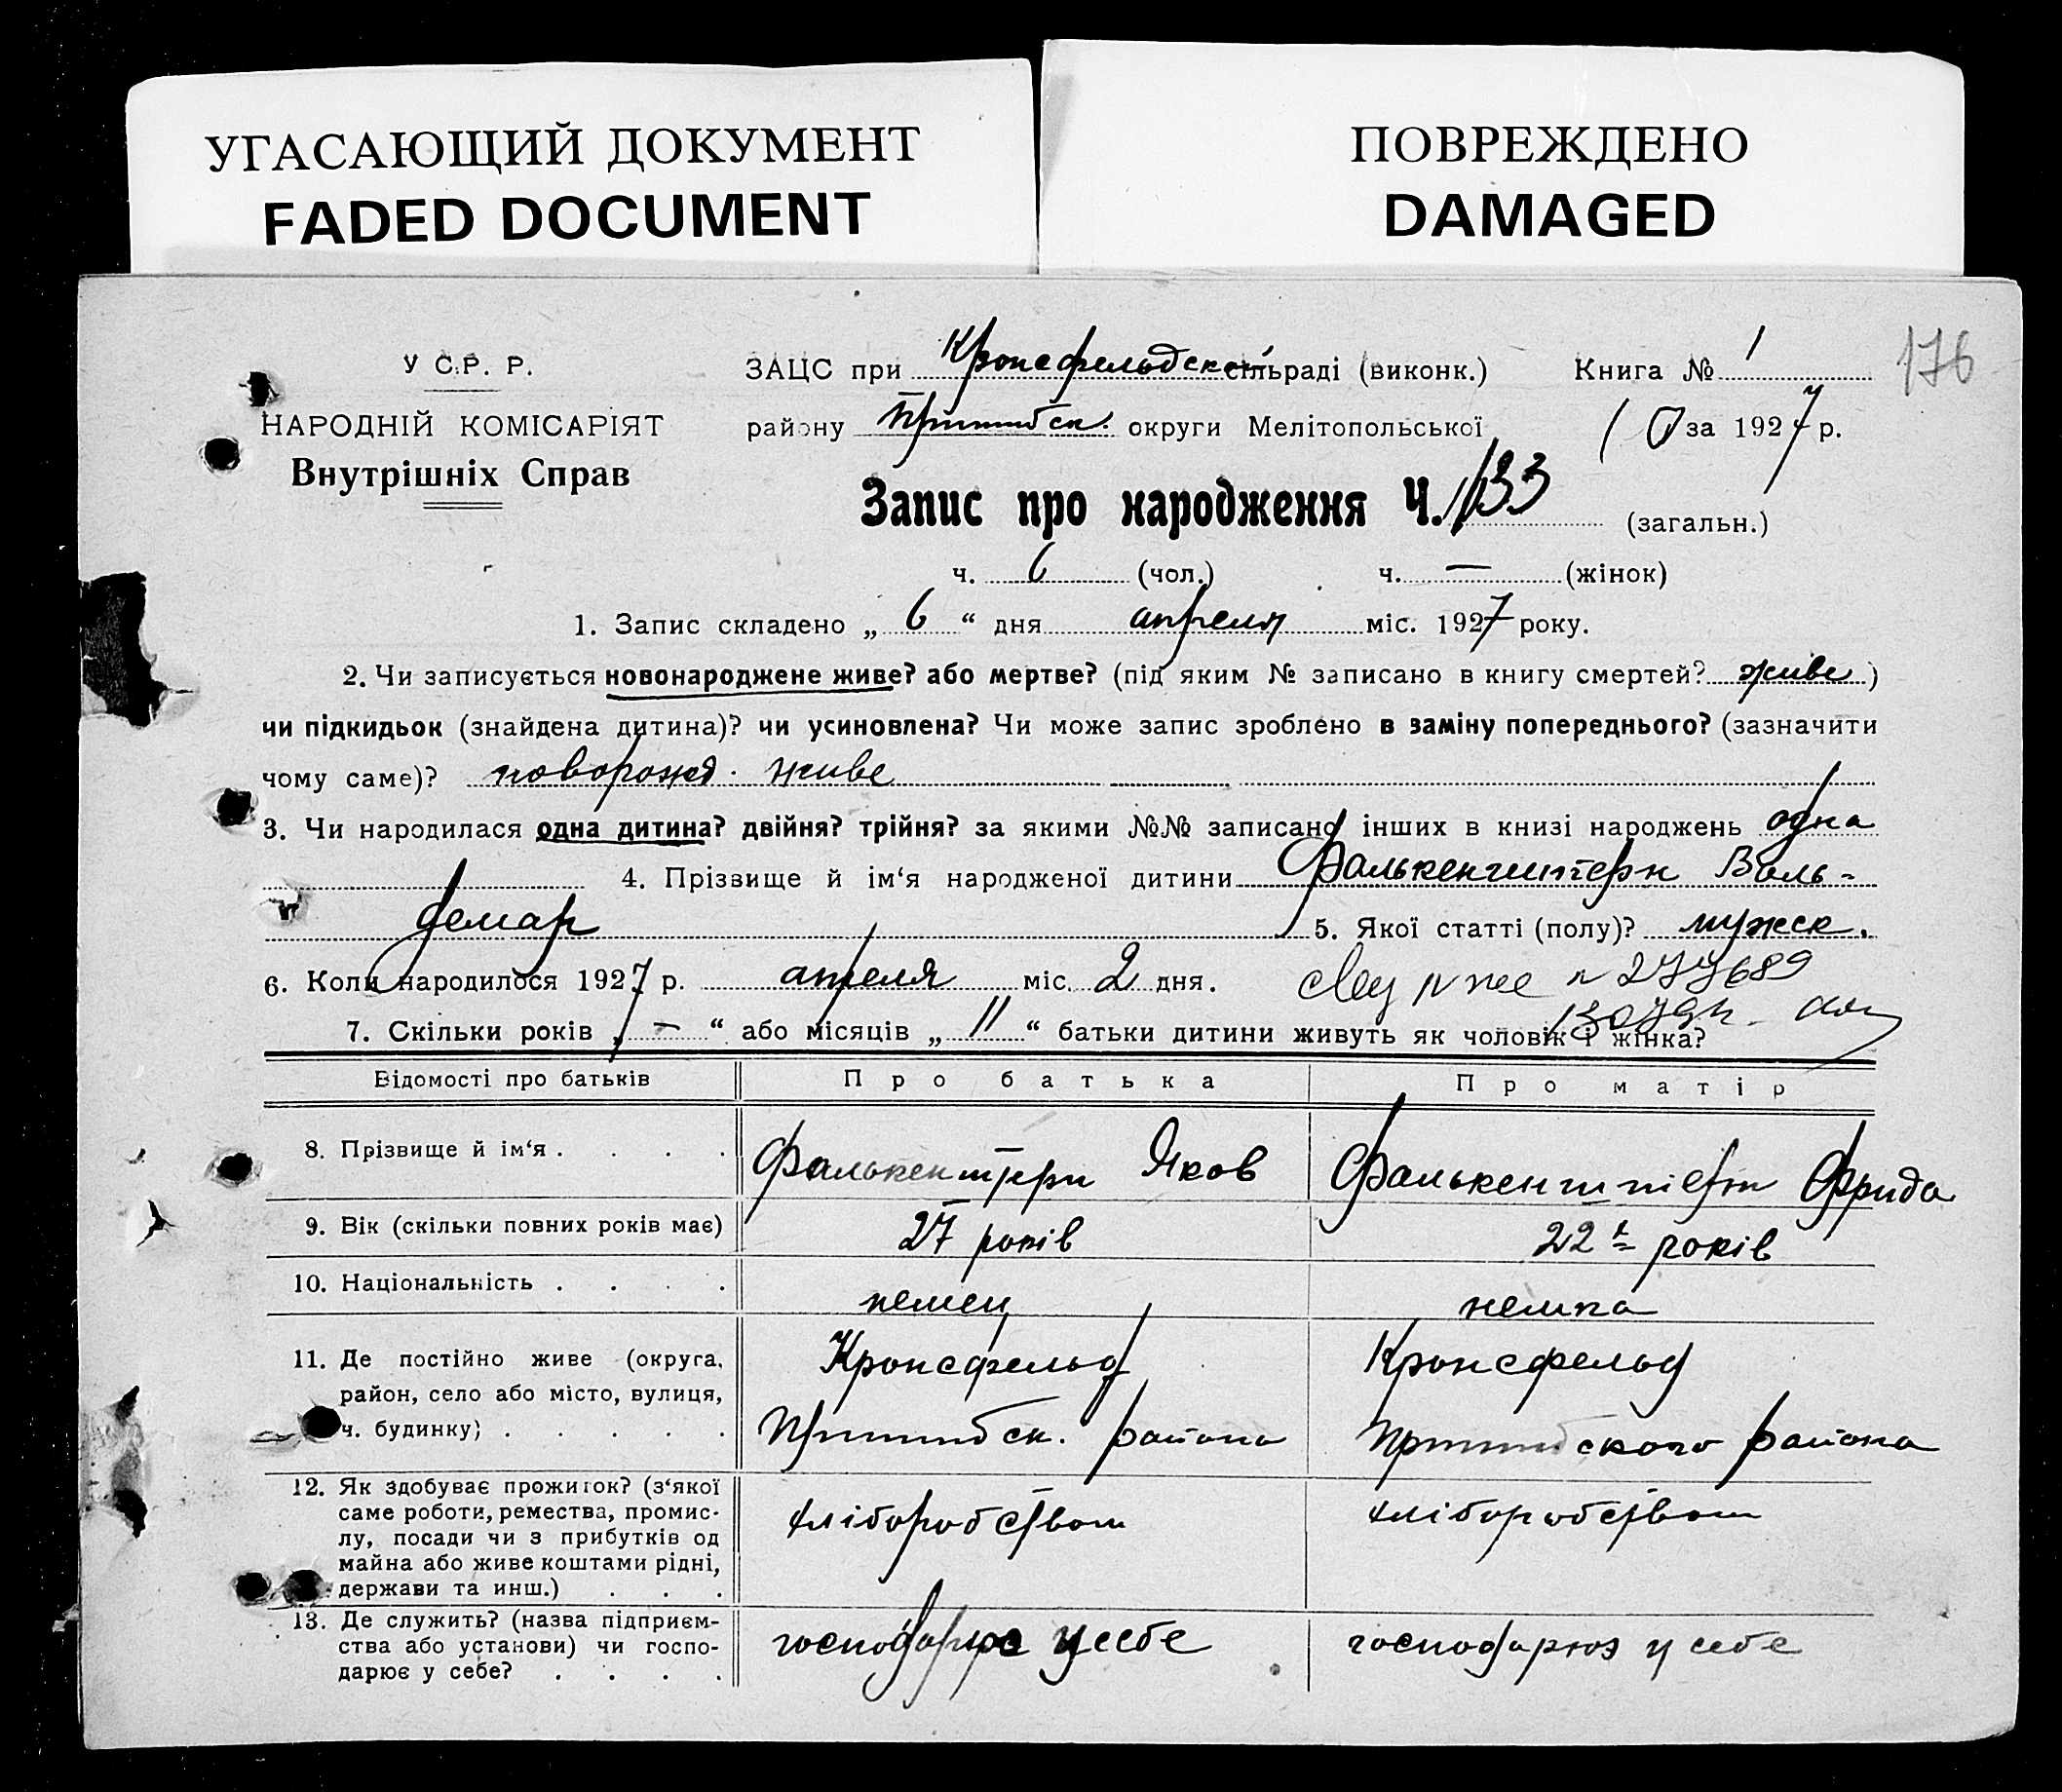 УГАСАЮЩИЙ ДОКУМЕНТ
FADED DOCUMENT
ПОВРЕЖДЕНО
DAMAGED
176
У С.Р. Р.
НАРОДНІЙ КОМІСАРІЯТ
Внутрішніх Справ
ЗАЦС при Кронсфельдской сільраді (виконк.) Книга № 1
району Пришибск. округи Мелітопольської за 1927 р.
Запис про народження Ч. 133 (загальн.)
ч. 6 (чол.) ч. — (жінок)
1. Запис складено „ 6 “ дня апреля міс. 1927 року.
2. Чи записується новонароджене живе? або мертве? (під яким № записано в книгу смертей? живе )
чи підкидьок (знайдена дитина)? чи усиновлена? Чи може запис зроблено в заміну попереднього? (зазначити
чому саме)? новорожд. живе
3. Чи народилася одна дитина? двійня? трійня? за якими №№ записано інших в книзі народжень одна
4. Прізвище й ім'я народженої дитини Фалькенштерн Воль-
демар 5. Якої статті (полу)? мужск.
6. Коли народилося 1927 р. апреля міс. 2 дня. 277689
7. Скільки років „ — “ або місяців „ 11 “ батьки дитини живуть як чоловік і жінка?
Відомості про батьків Про батька Про матір
8. Прізвище й ім'я . . . . Фалькенштерн Яков Фалькенштерн Фрида
9. Вік (скільки повних років має) 27 років 22 років
10. Національність . . . . немец немка
11. Де постійно живе (округа, Кронсфельд Кронсфельд
район, село або місто, вулиця,
ч. будинку) . . . . . Пришибск. района Пришибского района
12. Як здобуває прожиток? (з'якої
саме роботи, ремества, промис- хліборобством хліборобством
лу, посади чи з прибутків од
майна або живе коштами рідні,
держави та инш.) . . .
13. Де служить? (назва підприєм-
ства або установи) чи госпо- господарює у себе господарює у себе
дарює у себе? . . . .